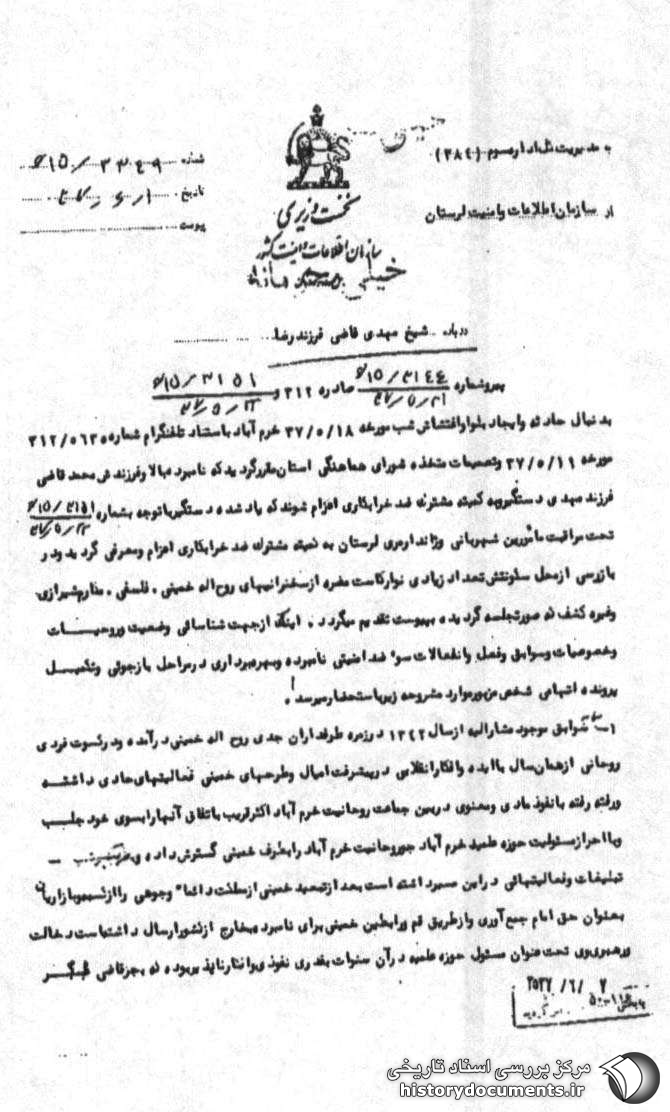 به مدیریت کل اداره سوم (۳۸۴)
از سازمان اطلاعات و امنیت لرستان
شماره ۳۲۴۹/۱۵ھ
تاریخ ۳۷/۶/۱
پیوست
نخست وزیری
سازمان اطلاعات و امنیت کشور
خیلی محرمانه
درباره شیخ مهدی قاضی فرزند رضا
پیرو شماره ۳۱۴۴/۱۵ھ صادره ۳۱۲ و ۳۱۵۱/۱۵ھ
۳۷/۵/۲۱ ۳۷/۵/۲۲
بدنبال حادثه و ایجاد بلوا و اغتشاش شب مورخه ۳۷/۵/۱۸ خرم آباد باستناد تلفنگرام شماره ۳۱۲/۵۶۳۵
مورخه ۳۷/۵/۱۹ و تصمیمات متخذه شورای هماهنگی استان مقرر گردید که نامبرده بالا و فرزندش محمد قاضی
فرزند مهدی دستگیر و به کمیته مشترک ضد خرابکاری اعزام شوند که یاد شده دستگیر با توجه بشماره ۳۱۵۱/۱۵ھ
۳۷/۵/۲۲
تحت مراقبت مأمورین شهربانی و ژاندارمری لرستان به کمیته مشترک ضد خرابکاری اعزام و معرفی گردید و در
بازرسی از محل سکونتش تعداد زیادی نوار کاست مضره از سخنرانیهای روح اله خمینی . فلسفی . مکارم شیرازی
و غیره کشف که صورتجلسه گردیده بپیوست تقدیم میگردد . اینک از جهت شناسائی وضعیت و روحیات
و خصوصیات و سوابق و فعل و انفعالات سوء ضد امنیتی نامبرده و بهره برداری در مراحل بازجوئی و تکمیل
پرونده اتهامی شخص مزبور موارد مشروحه زیر باستحضار میرسد .
۱- سوابق موجود مشارالیه از سال ۱۳۴۲ در زمره طرفداران جدی روح اله خمینی درآمده و در کسوت فردی
روحانی از همان سال با ایده و افکار انقلابی در پیشرفت امیال و طرحهای خمینی فعالیتهای حادی داشته
و رفته رفته با نفوذ مادی و معنوی در بین جماعت روحانیت خرم آباد اکثر قریب باتفاق آنها را بسوی خود جلب
و با احراز مسئولیت حوزه علمیه خرم آباد جو روحانیت خرم آباد را بطرف خمینی گسترش داده و
تبلیغات و فعالیتهائی در این مسیر داشته است بعد از تبعید خمینی از مملکت دائماً وجوهی را از کسبه و بازاریان
بعنوان حق امام جمع آوری و از طریق قم و رابطین خمینی برای نامبرده بخارج از کشور ارسال داشته است دخالت
و رهبری وی تحت عنوان مسئول حوزه علمیه در آن سنوات بقدری نفوذی و انکارناپذیر بوده که بجز قاضی دیگر
۲۵۳۷/۶/۲
مرکز بررسی اسناد تاریخی
historydocuments.ir